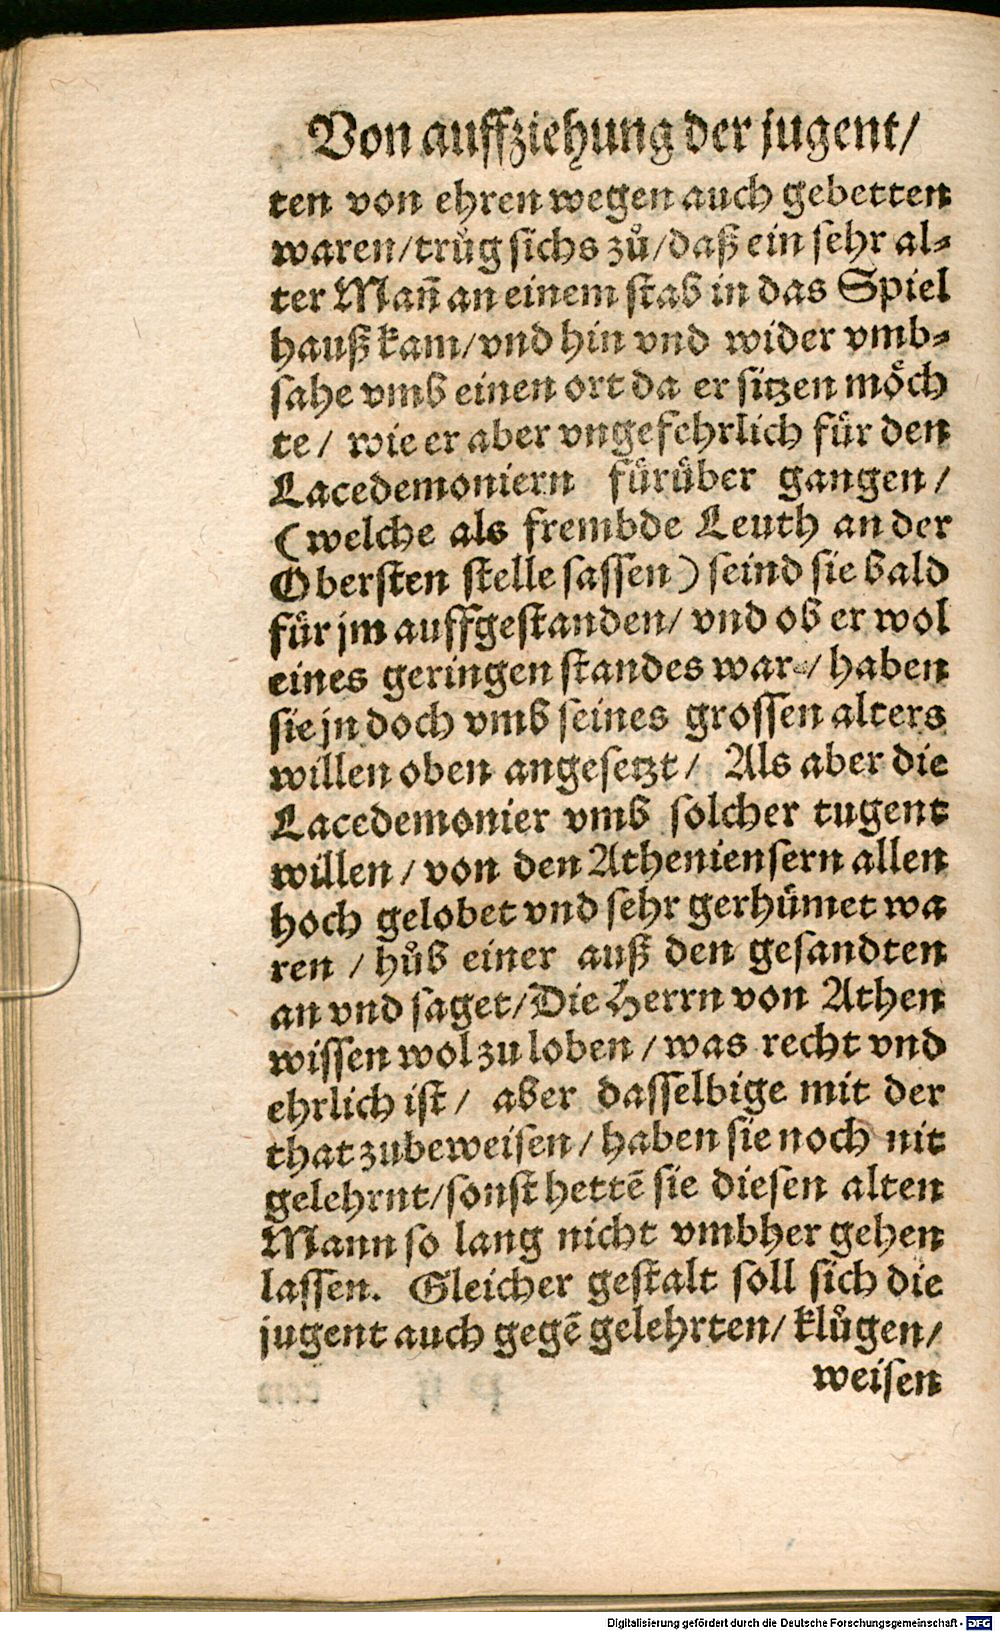 Von auffziehung der jugent/
ten von ehren wegen auch gebetten
waren/trůg sichs zů/daß ein sehr al⸗
ter Mañ an einem stab in das Spiel
hauß kam/vnd hin vnd wider vmb⸗
sahe vmb einen ort da er sitzen moͤch
te/ wie er aber vngefehrlich fuͤr den
Lacedemoniern fuͤruͤber gangen/
(welche als frembde Leuth an der
Obersten stelle sassen) seind sie bald
fuͤr jm auffgestanden/ vnd ob er wol
eines geringen standes war⸗/ haben
sie jn doch vmb seines grossen alters
willen oben angesetzt/ Als aber die
Lacedemonier vmb solcher tugent
willen/ von den Atheniensern allen
hoch gelobet vnd sehr gerhuͤmet wa
ren / hůb einer auß den gesandten
an vnd saget/Die Herrn von Athen
wissen wol zu loben / was recht vnd
ehrlich ist/ aber dasselbige mit der
that zubeweisen / haben sie noch nit
gelehrnt/sonst hettē sie diesen alten
Mann so lang nicht vmbher gehen
lassen. Gleicher gestalt soll sich die
jugent auch gegē gelehrten/ klůgen/
weisen
Digitalisierung gefördert durch die Deutsche Forschungsgemeinschaft - DFG